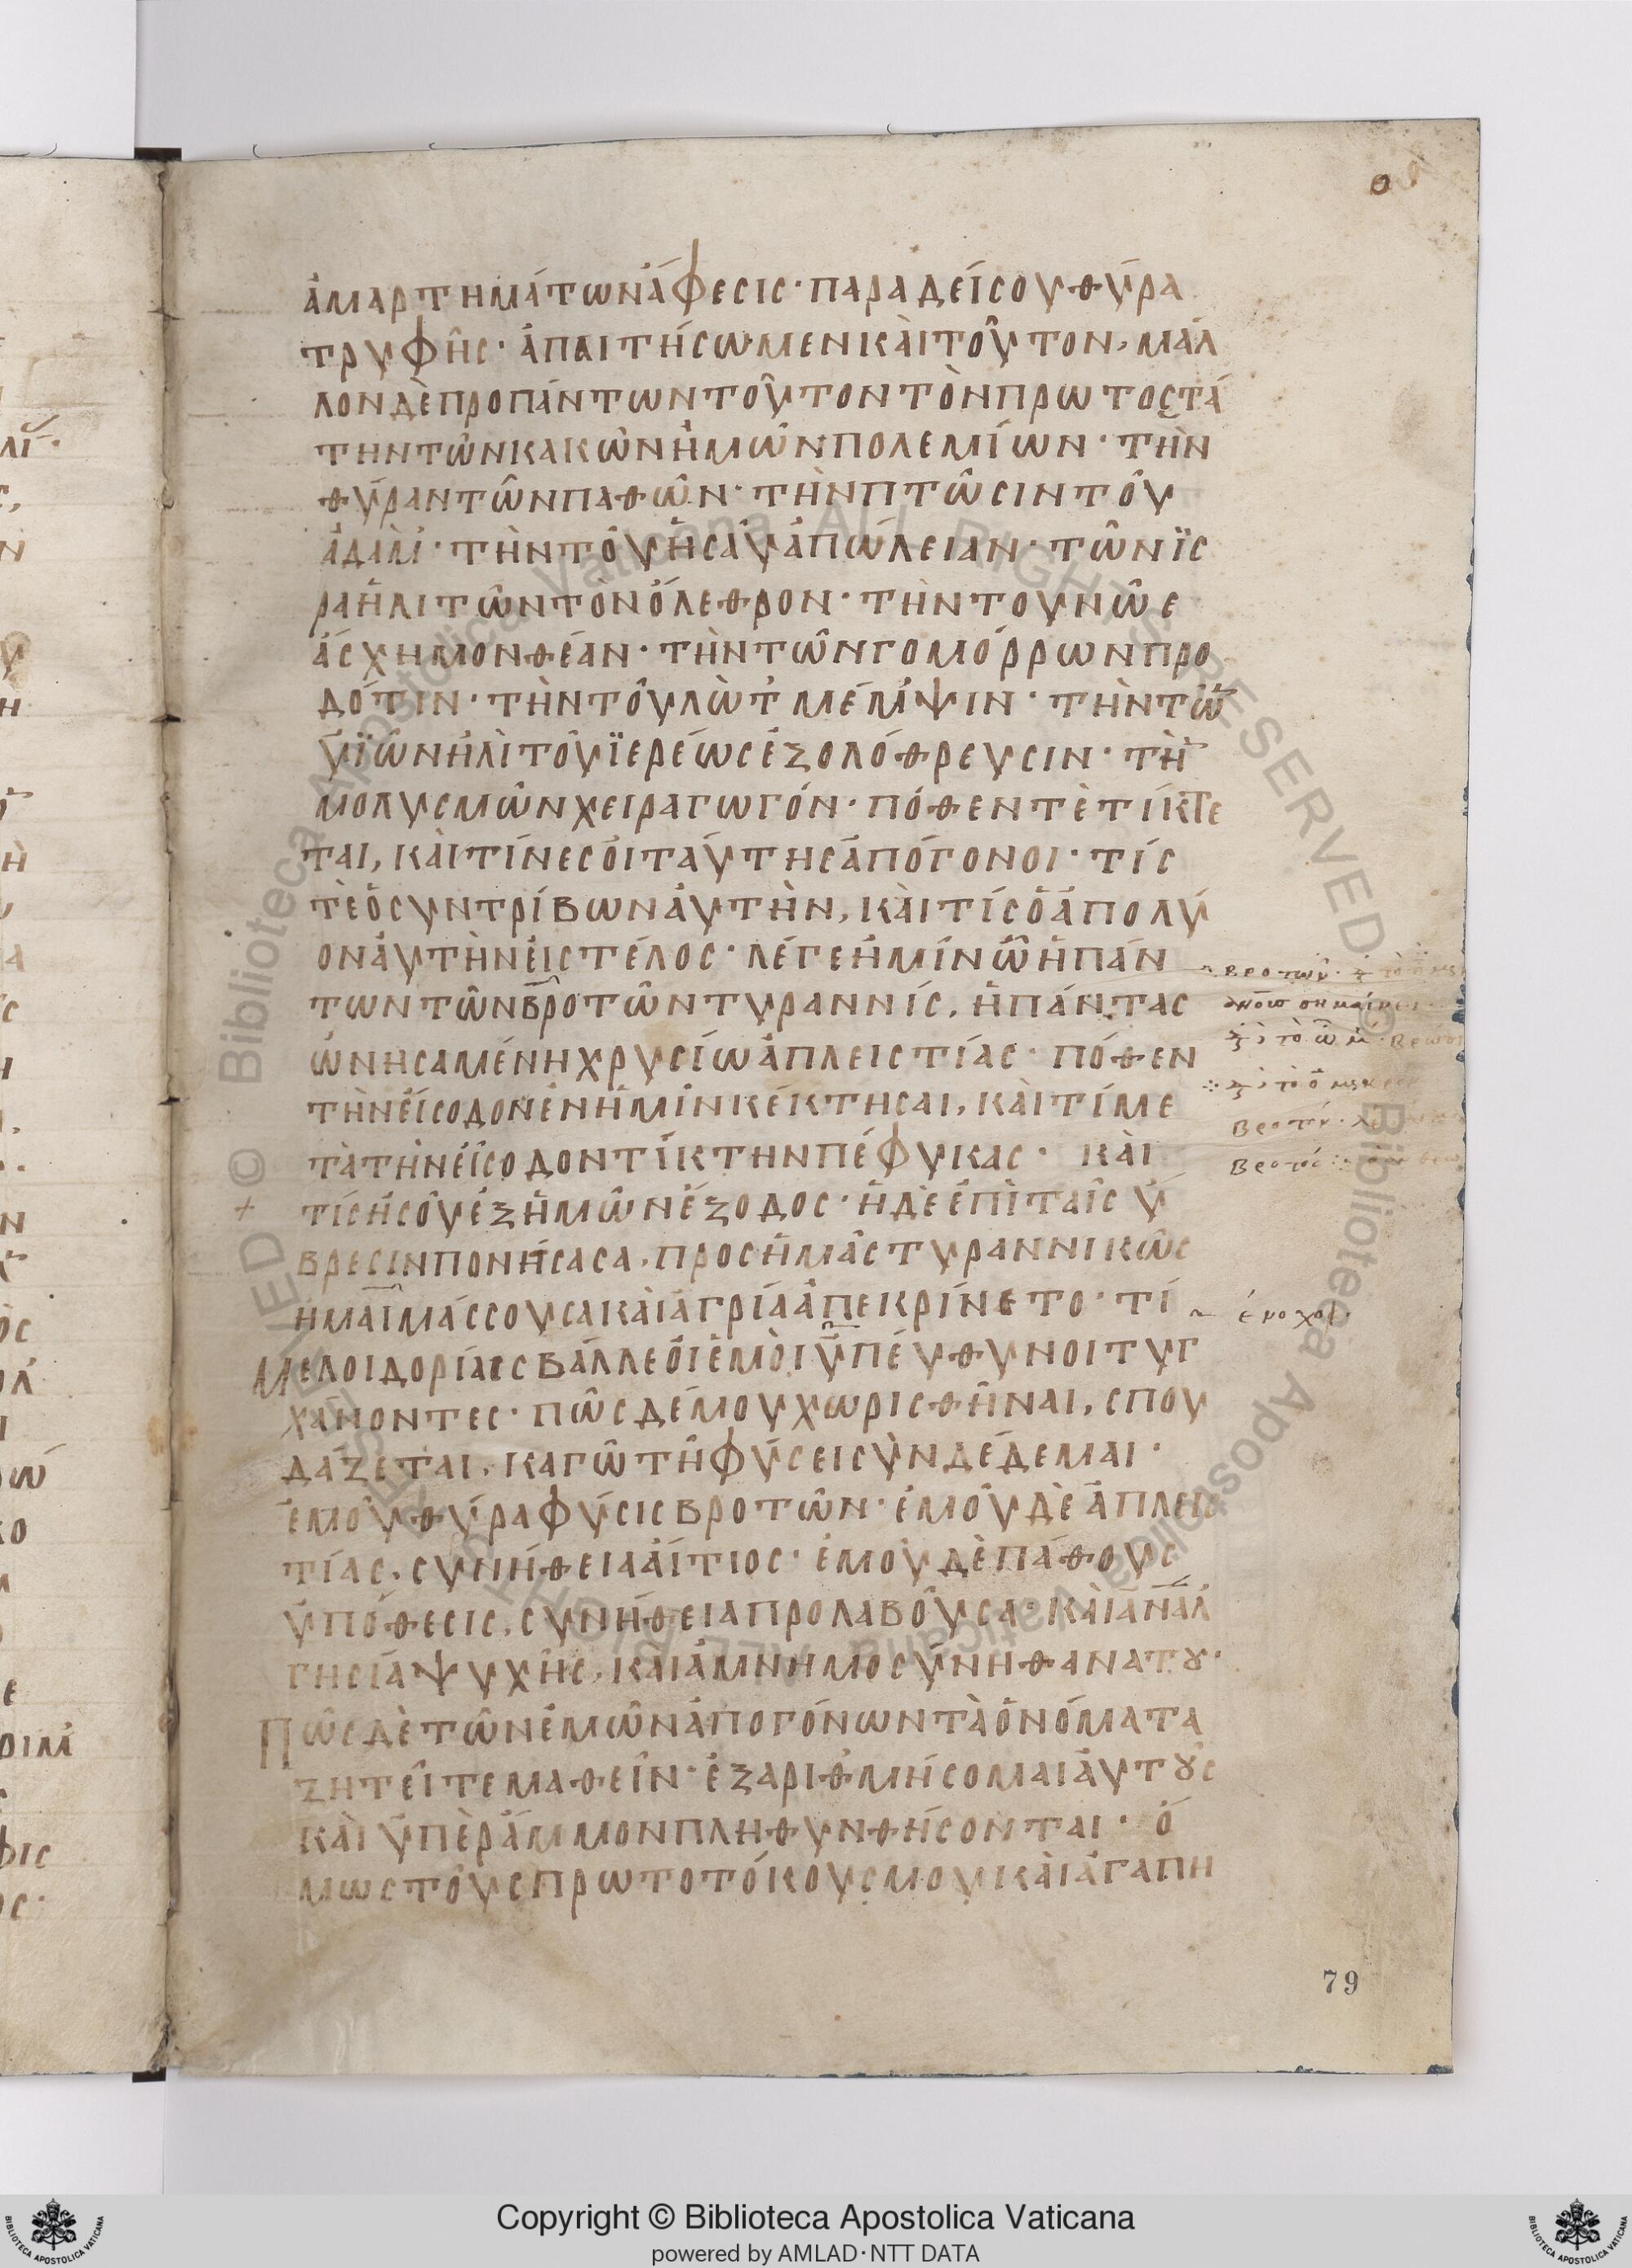 ἁμαρτημάτων ἄφεσις· παραδείσου θύρα
τρυφῆς· ἀπαιτήσωμεν καὶ τοῦτον, μᾶλ
λον δὲ προ πάντων τοῦτον τὸν πρωτοστά
την τῶν κακῶν ἡμῶν πολεμίων· τὴν
θύραν τῶν παθῶν· τὴν πτῶσιν τοῦ
ἀδὰμ· τὴν τοῦ ἠσαῦ ἀπώλειαν· τῶν ϊσ
ραηλιτῶν τὸν ὄλεθρον· τὴν του νῶε
ἀσχημονθέαν· τὴν τῶν γομόρρων προ
δότιν· τὴν τοῦ λὼτ μέμψιν· τὴν τῶ
υἱῶν ἠλὶ τοῦ ϊερέως ἐξολόθρευσιν· τὴ
μολυσμῶν χειραγωγόν· πόθεν τὲ τίκτε
ται, καὶ τίνες οἱ ταύτης ἀπόγονοι· τίς
τὲ ὁ συντρίβων αὐτὴν, καὶ τίς ὁ ἀπολύ
ον αὐτὴν εἰς τέλος· λέγε ἡμίν ὦ ἡ πάν
των τῶν βροτῶν τυραννίς, ἡ πάντας
ὠνησαμένη χρυσίω ἀπλειστίας· πόθεν
τὴν εἴσοδον ἐν ἡμῖν κέκτησαι, καὶ τί με
τὰ τὴν εἴσοδον τίκτην πέφυκας· καὶ
τίς ἡ σοῦ ἐξ ἡμῶν ἔξοδος· ἡ δὲ ἐπὶ ταῖς ὕ
βρεσιν πονήσασα, προς ἡμᾶς τυραννικῶς
ἡμαϊμάσσουσα καὶ ἀγρία ἀπεκρίνετο· τί
με λοιδορίαις βάλλε οἱ ἐμοὶ ὑπεύθυνοι τυγ
χάνοντες· πῶς δέ μου χωρισθῆναι, σπου
δάζεται, καγῶ τῆ φύσει σὺνδέδεμαι·
ἐμοῦ θύρα φύσις βροτῶν· ἐμοῦ δὲ ἀπλεισ
τίας, συνήθεια αἴτιος· ἐμοῦ δὲ πάθους
ὑπόθεσις, συνήθεια προλαβοῦσα· καὶ ἀναλ
γησία ψυχῆς, καὶ ἀμνημοσύνη θανατου·
Πῶς δὲ τῶν ἐμῶν ἀπογόνων τὰ ὀνόματα
ζητεῖτε μαθεῖν· ἐξαριθμήσομαι αὐτοὺς
καὶ ὑπὲρ ἄμμον πληθυνθήσονται· ὅ
μως τοὺς πρωτοτόκους μου καὶ ἀγαπη
βροτῶν·
σημαίνει
ἔνοχοι·
79
Copyright © Biblioteca Apostolica Vaticana
powered by AMLAD·NTT DATA